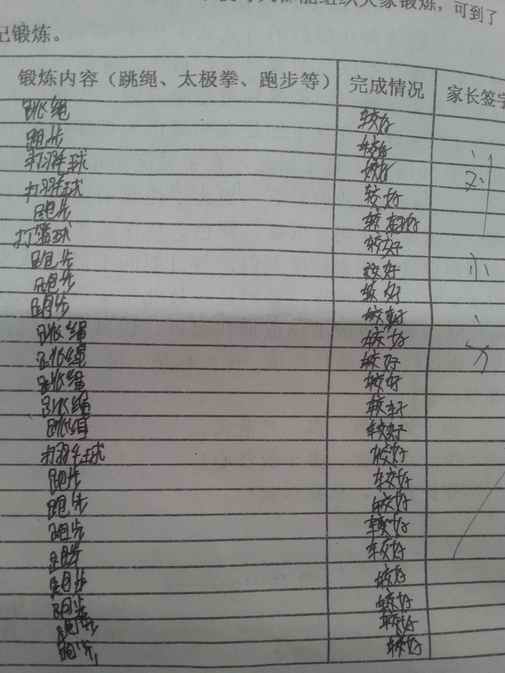 组织大家锻炼，可到了
记锻炼。
锻炼内容（跳绳、太极拳、跑步等） 完成情况 家长签字
跳绳 较好
跑步 较好
打羽毛球 较好
打羽毛球 较好
跑步 较好
打篮球 较好
跑步 较好
跑步 较好
跑步 较好
跳绳 较好
跳绳 较好
跳绳 较好
跳绳 较好
跳绳 较好
打羽毛球 较好
跑步 较好
跑步 较好
跑步 较好
跑步 较好
跑步 较好
跑步 较好
跑步 较好
跑步 较好